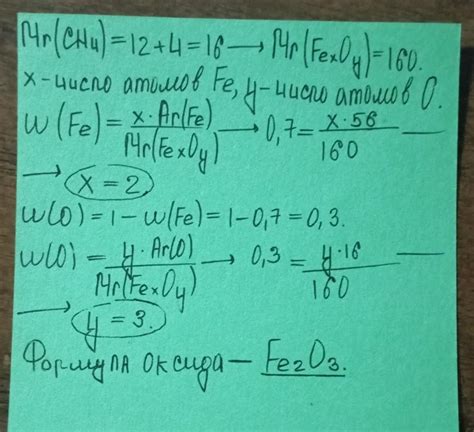 Mr(CH4)=12+4=16→Mr(FexOy)=160.
x-число атомов Fe, y-число атомов O.
w(Fe)=x·Ar(Fe)/Mr(FexOy)→0,7=x·56/160—
→x=2.
w(O)=1-w(Fe)=1-0,7=0,3.
w(O)=y·Ar(O)/Mr(FexOy)→0,3=y·16/160—
→y=3.
Формула оксида—Fe2O3.